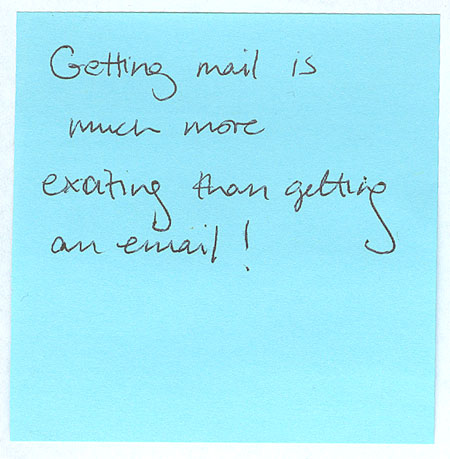 Getting mail is
much more
exciting than getting
an email!